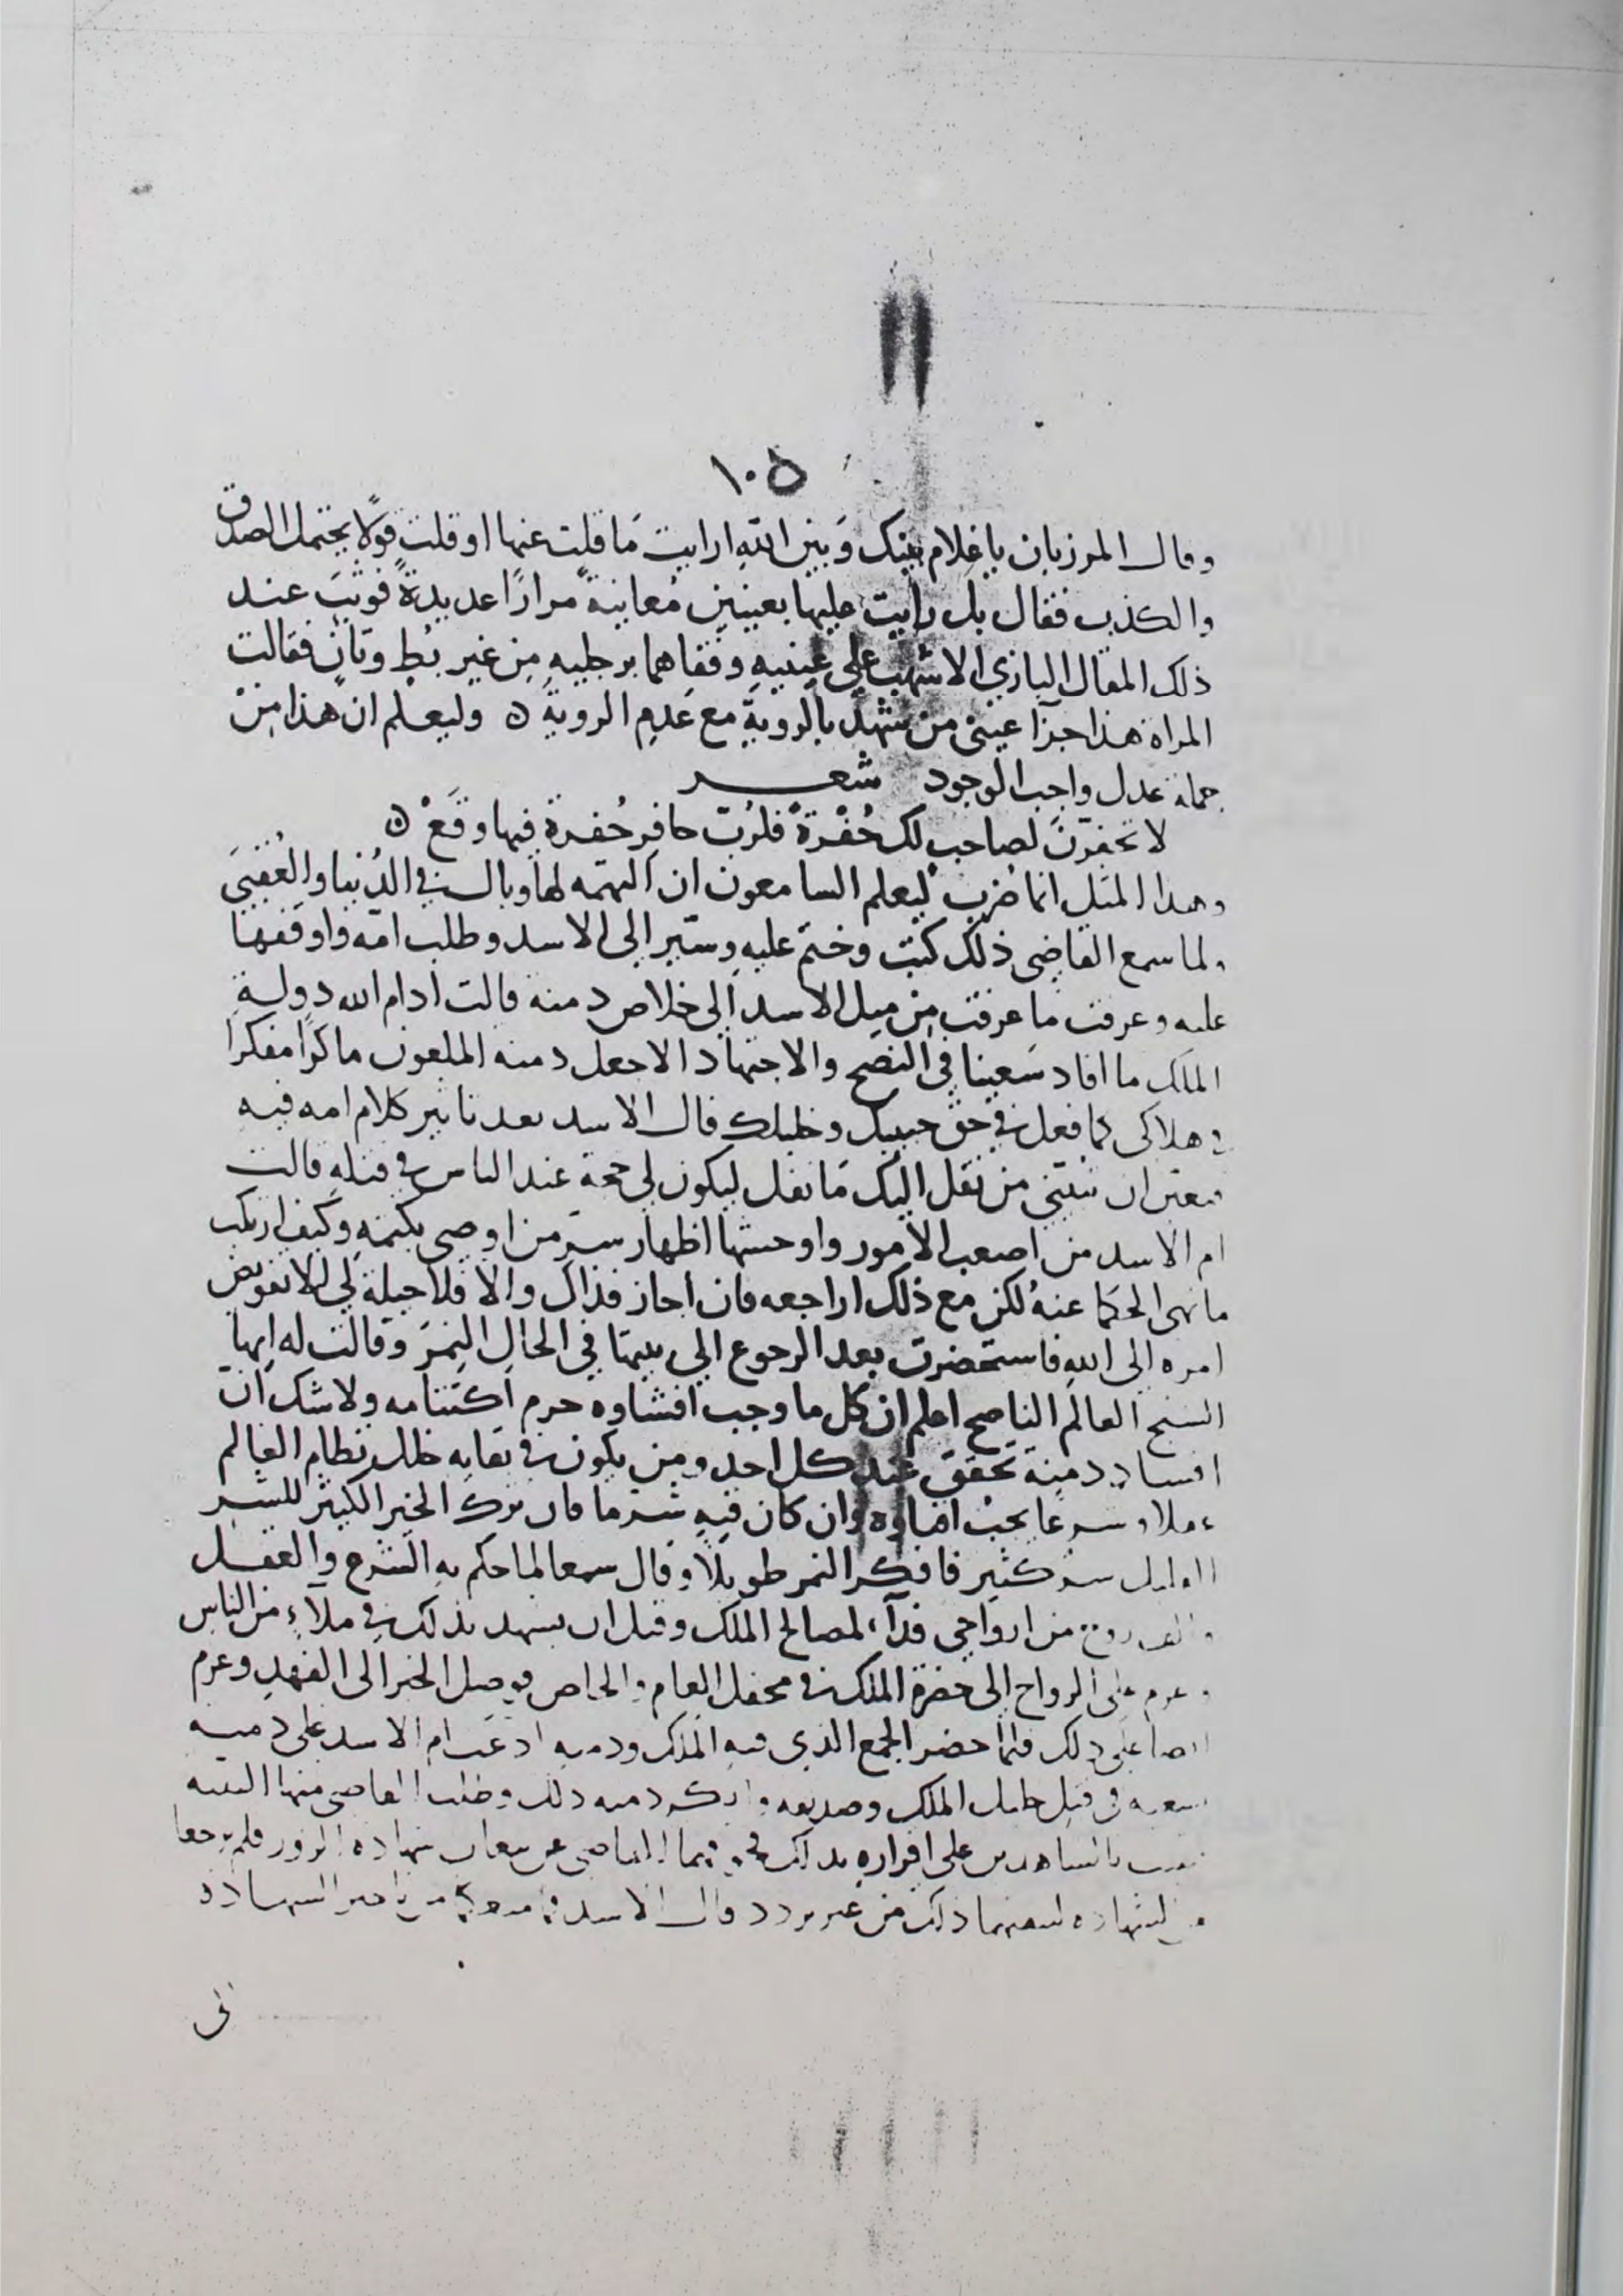 ١٠٥
وقال المرزبان يا غلام بينك وَبين الله ارايت مَا قلت عنها او قلت قولًا يحتمل الصدق
والكذب فقال بل رايت عليها بعينين مُعاينة مرارًا عديدةً فوثبَ عند
ذلك المقال البازي الاشهب على عينيهِ وفقاهما برجليهِ مِن غير بُطٍ وتانٍ فقالت
المراة هذا جزآ عيني من شهد بالرويةِ مع عَدمِ الروية ٥ وليعلم ان هذا مِنْ
جملة عدل واجب الوجود شعر
لا تحفرنَ لصاحبٍ لك حُفْرةً فلرُبَّ حافِر حُفرة فيها وقَعْ ٥
وهدا المثل انما ضُرب ليعلم السامعون ان التهمه لها وبال في الدُنيا والعُقبَى
ولما سمع القاضي ذلك كتبَ وختم عليهِ وسيّر الى الاسد وطلب امّه واوقفها
عليه وعرفت ما عرفت مِن ميل الاسد الى خلاص دمنة قالت ادام الله دولة
الملك ما افاد سَعينا في النصح والاجتهاد الا جعل دمنه الملعون ماكرًا مفكرًا
في هلاكي كما فعل في حق حبيبك وخليلك قال الاسد بعد تاثير كلام امه فيه
ان من نقل اليك مَا نقل ليكون لي حجة عند الناس في قتلهِ قالت
ام الاسد من اصعب الامور واوحشها اظهار سرِ من اوصى بكتمهِ وكيف ارتكب
ما نهى الحكما عنهُ لكن مع ذلك اراجعه فان اجاز فذاك والا فلا حيلة لي الا تفويض
امره الى الله فاستحضرت بعد الرجوع الى بيتها في الحال النمرَ وقالت له ايها
الشيخ العالم الناصح اعلم ان كل ما وجب افشاوه حرم اكتتامه ولا شك ان
افساد دمنة تحقق عند كل احدٍ ومن يكون في بقايه خلل نظام العالم
وشرعًا يجب وان كان فيهِ شر ما فان ترك الخير الكثير للشر
القليل شر كثير فافكر النمر طويلًا وقال سمعا لما حكم به الشرع والعقل
من ارواحي فدآء لمصالح الملك وقبل ان يشهد بذلك في ملآءٍ من الناس
وعزم على الرواح الى حضرة الملك في محفل العام والخاص فوصل الخبر الى الفهد وعزم
ايضا على ذلك فلما حضر الجمع الذي فيه الملك ودمنه ادعت ام الاسد على دمنه
في قتل خليل الملك وصديقه وانكر دمنه ذلك وطلب القاضي منها البينه
بالشاهدين على اقراره بذلك القاضي عن شهادة الزور فلم يرجعا
ذلك من غير تردد قال الاسد
في